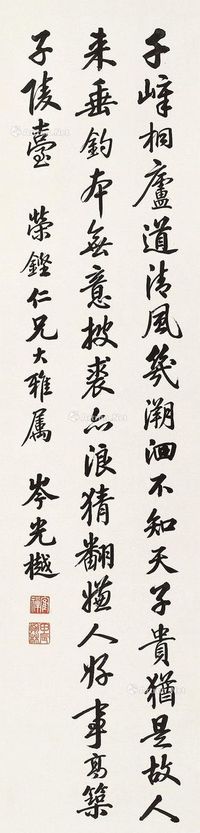 千峰桐廬道清風幾溯洄不知天子貴猶是故人
来垂釣本無意披裘亦浪猜翻嫌人好事高築
子陵臺　榮鏗仁兄大雅属　岑光樾